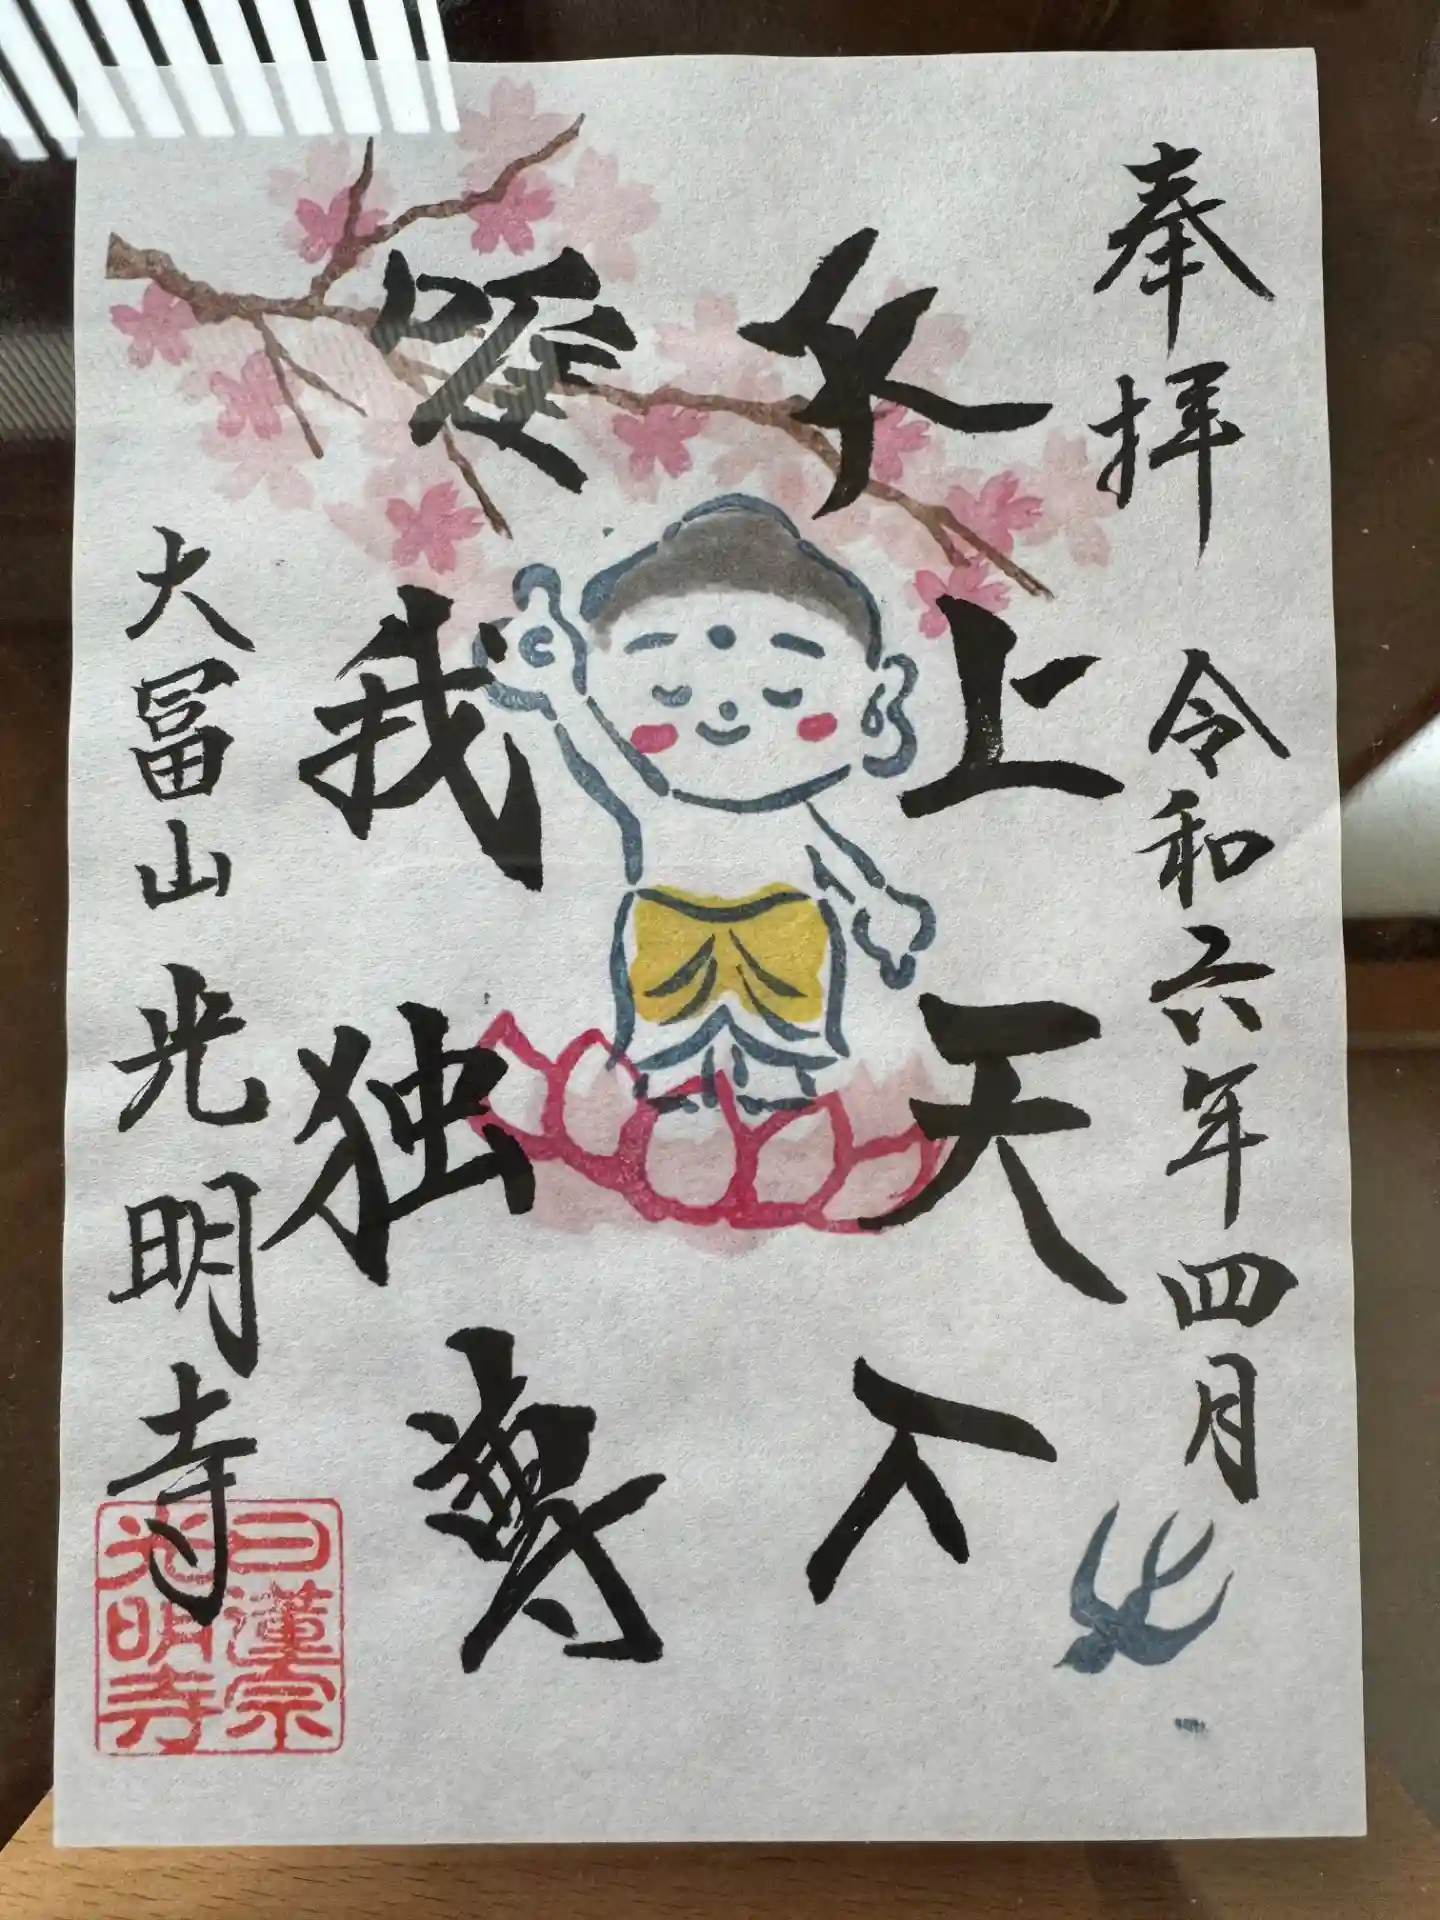 奉拝
令和六年四月
天上天下
唯我独尊
大冨山 光明寺
日蓮宗
光明寺